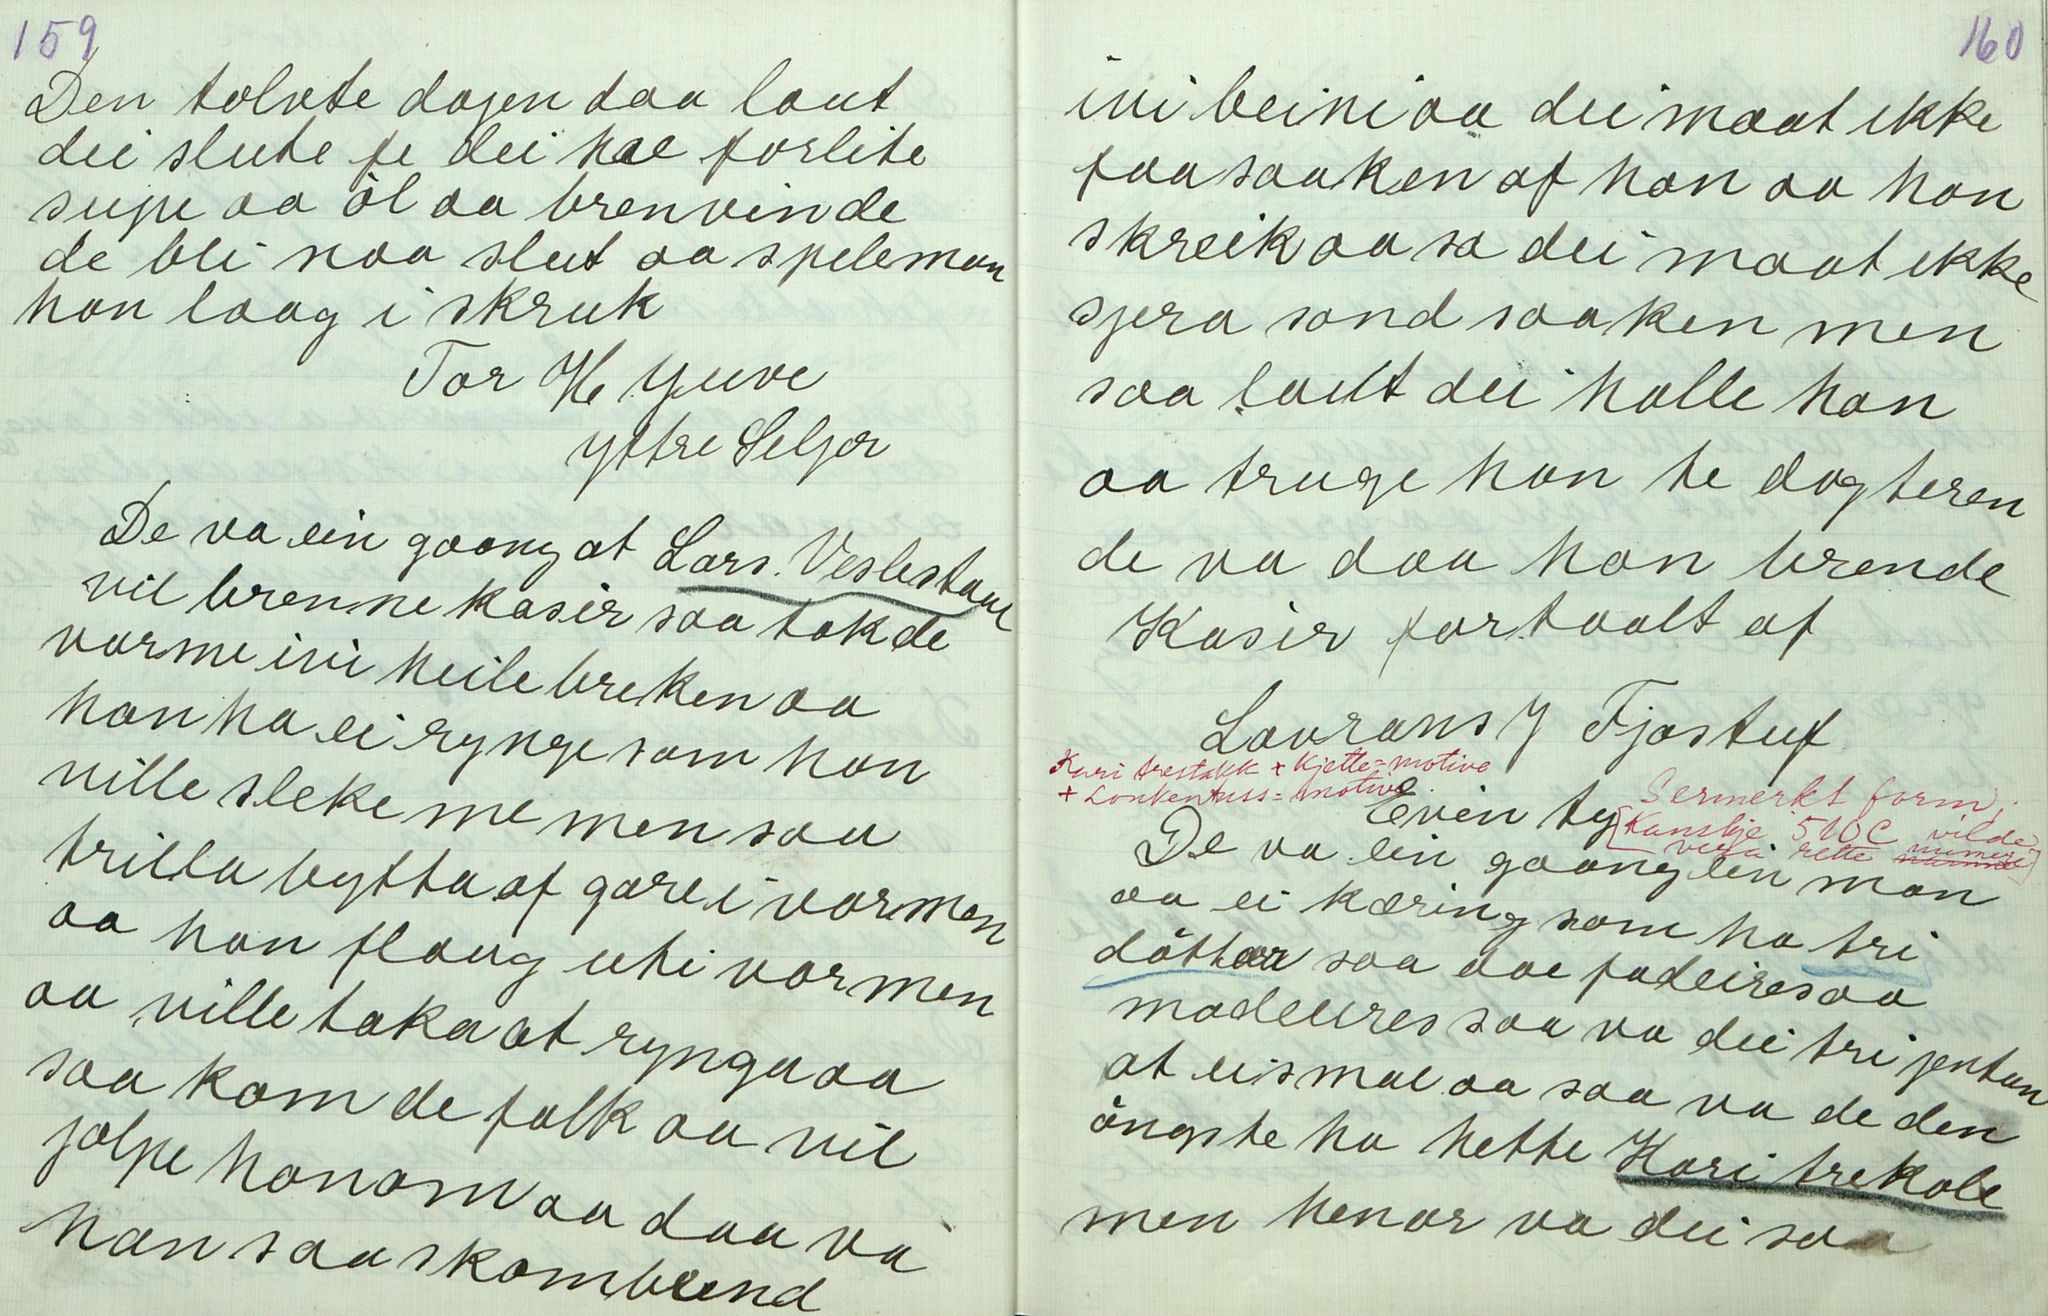 159
Den tolvte dagen daa laut
dei slute fe dei hae forlite
supe aa öl aa brenvin de
de bli noa slut aa speleman
han laag i skruk
Tor H. Yuve
yttre Seljor
De va ein gaang at Lars. Veslestaul
vil brenne kasir saa tok de
varme ivi heile breken aa
han ha ei rynge som han
ville sleke me men saa
trilla bytta af gare i varmen
aa han flaug uti varmen
aa ville taka at rynga aa
saa kom de folk aa vil
jolpe honom aa daa va
han saa skambrend
160
ivi beini aa dei maat ikke
faa saaken af han aa han
skreik aa sa dei maat ikke
sjera sond saaken men
saa laut dei halle han
aa truge han te dagteren
de va daa han brende
Kasir fortaalt af
Lavrans J Fjostuf
Kari trestakk + kjette-motive
+ Lonkentuss-motive.
Sermerkt form.
Even ty
[Kanskje 510C vilde
vera rette numeri]
De va ein gaang ein man
aa ei kæring som ha tri
döttar saa doe fadeires aa
madeires saa va dei tri jentun
at eismae aa saa va de den
öngste ha hette Kari trekole
men henar va dei saa